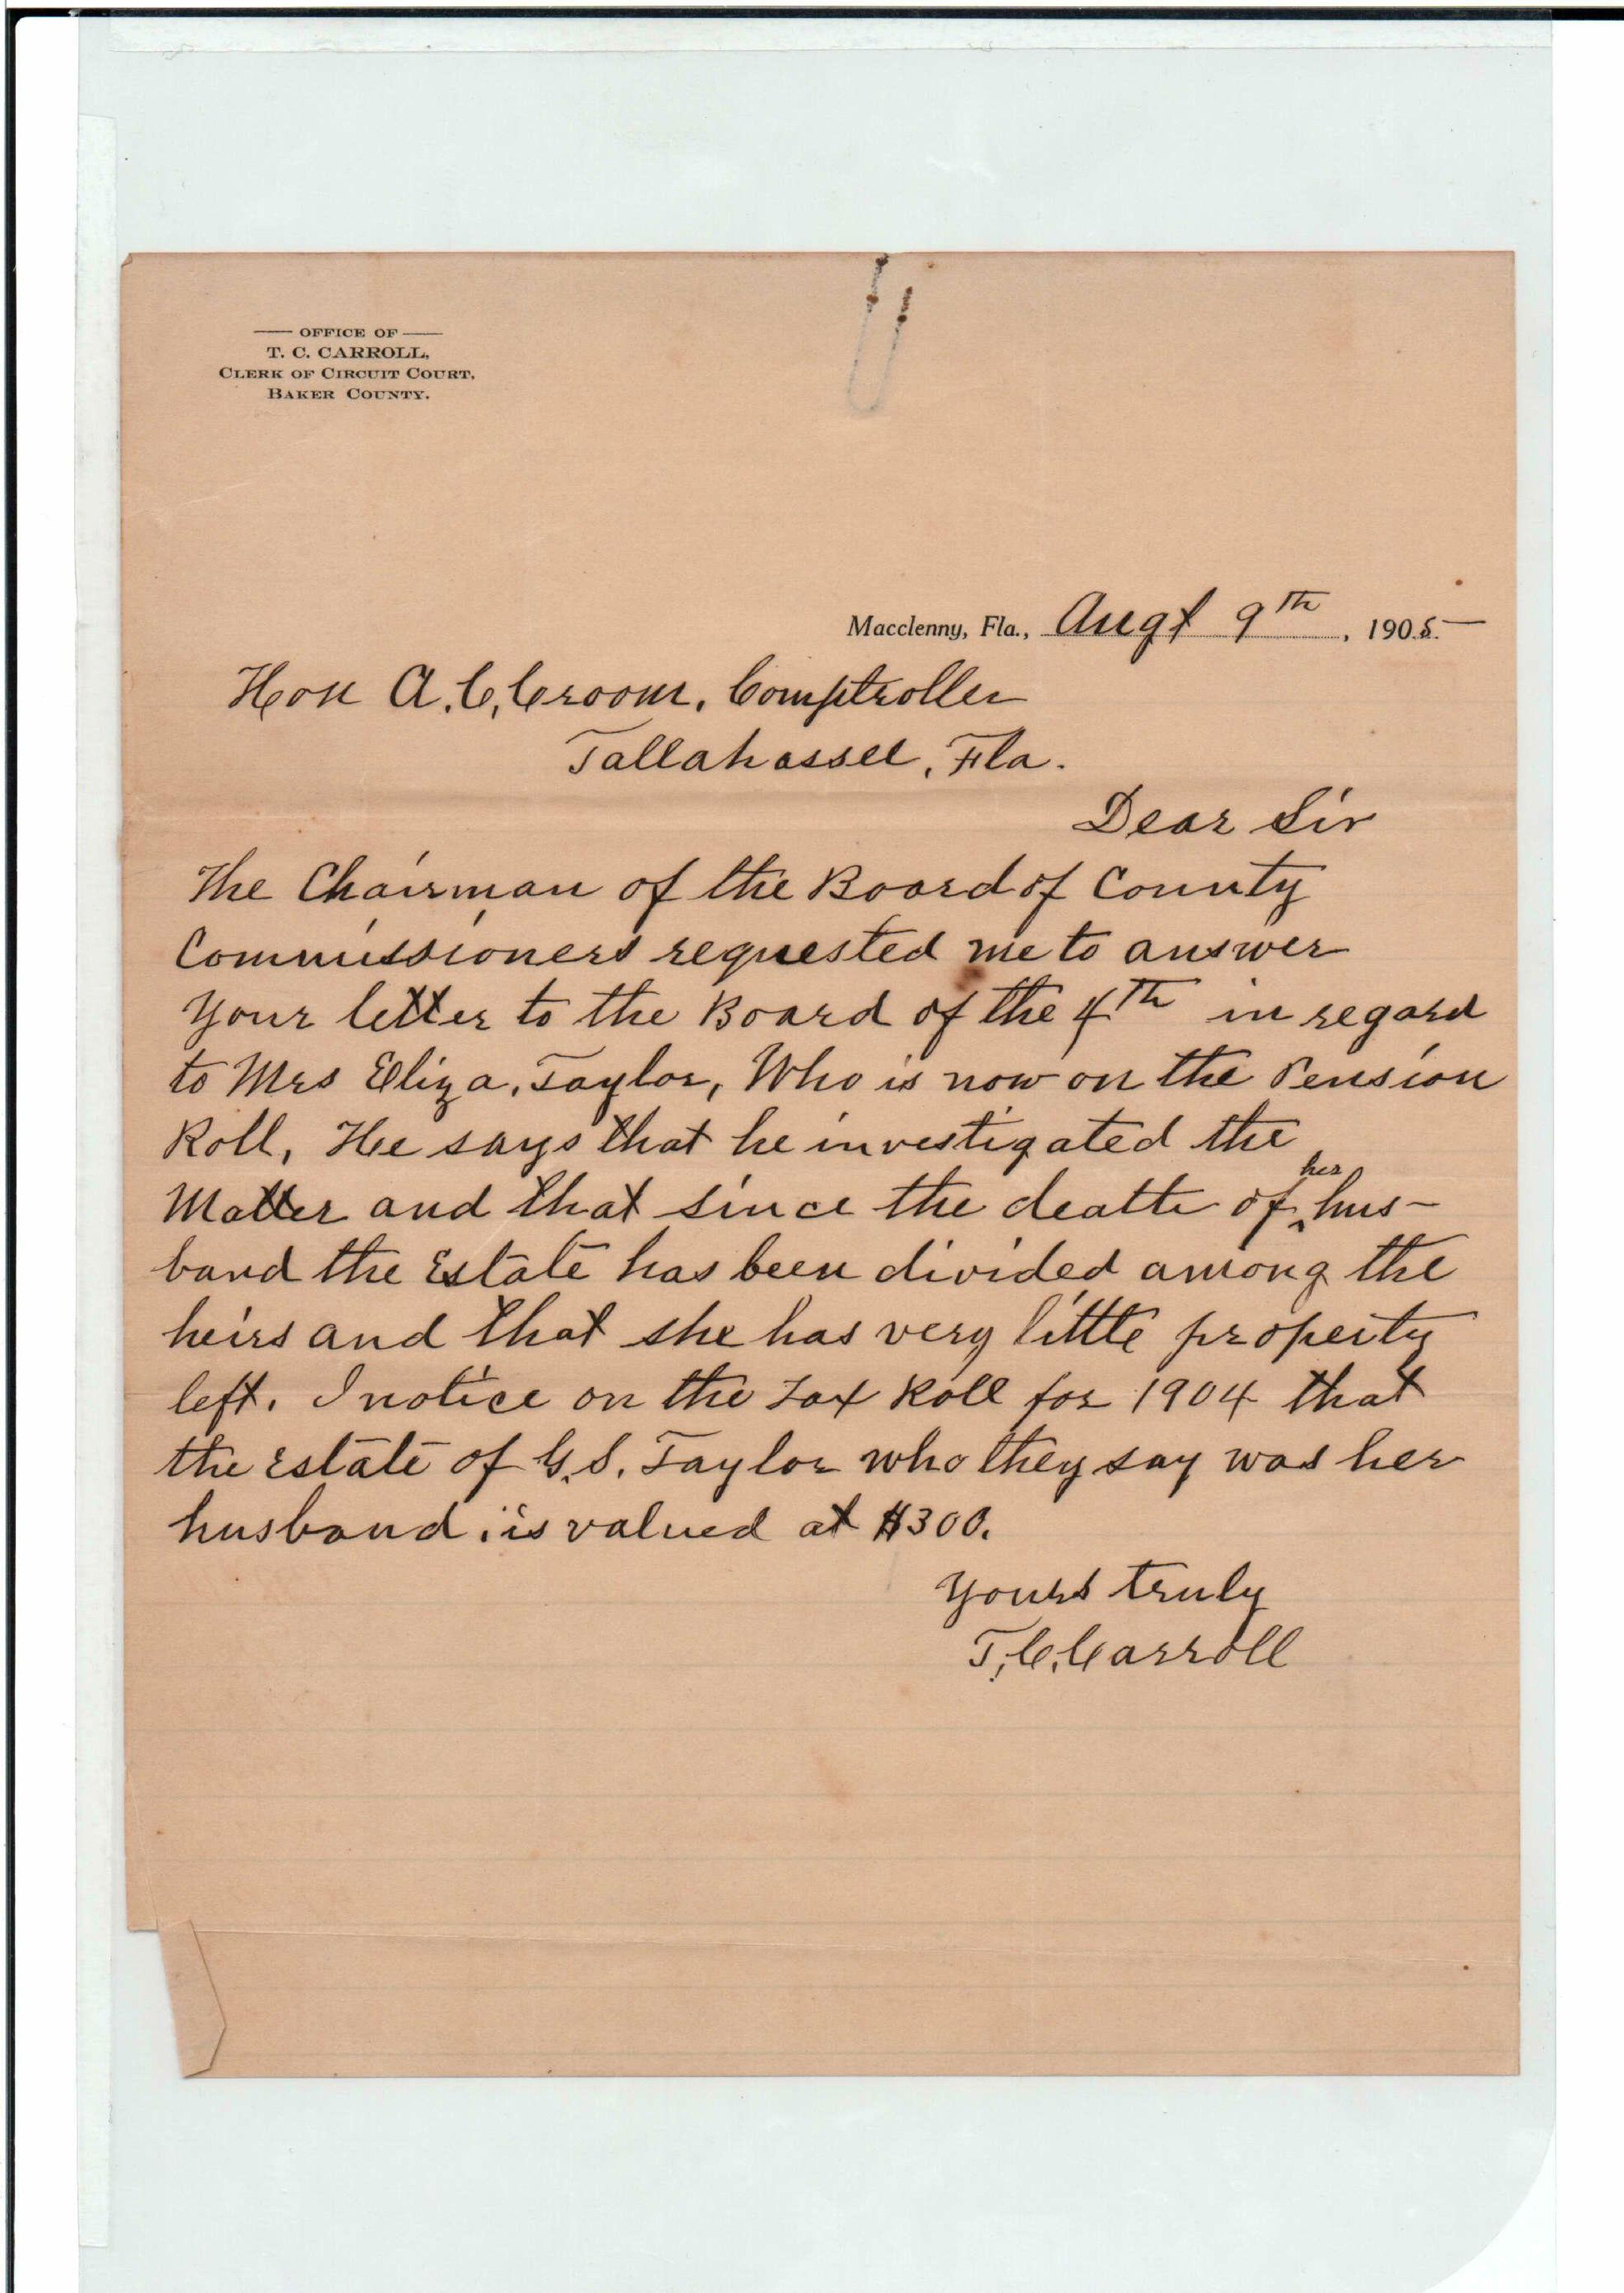 OFFICE OF
T. C. CARROLL,
CLERK OF CIRCUIT COURT,
BAKER COUNTY.
Macclenny, Fla., Augt 9th, 1905
Hon A. C. Croom, Comptroller
Tallahassee, Fla.
Dear Sir
The Chairman of the Board of County
Commissioners requested me to answer
Your letter to the Board of the 4th in regard
to Mrs Eliza, Taylor, Who is now on the Pension
Roll, He says that he investigated the
Matter and that since the death of her hus-
band the Estate has been divided among the
heirs and that she has very little property
left. I notice on the Tax Roll for 1904 that
the Estate of G. S. Taylor who they say was her
husband, is valued at $300.
Yours truly
T. C. Carroll